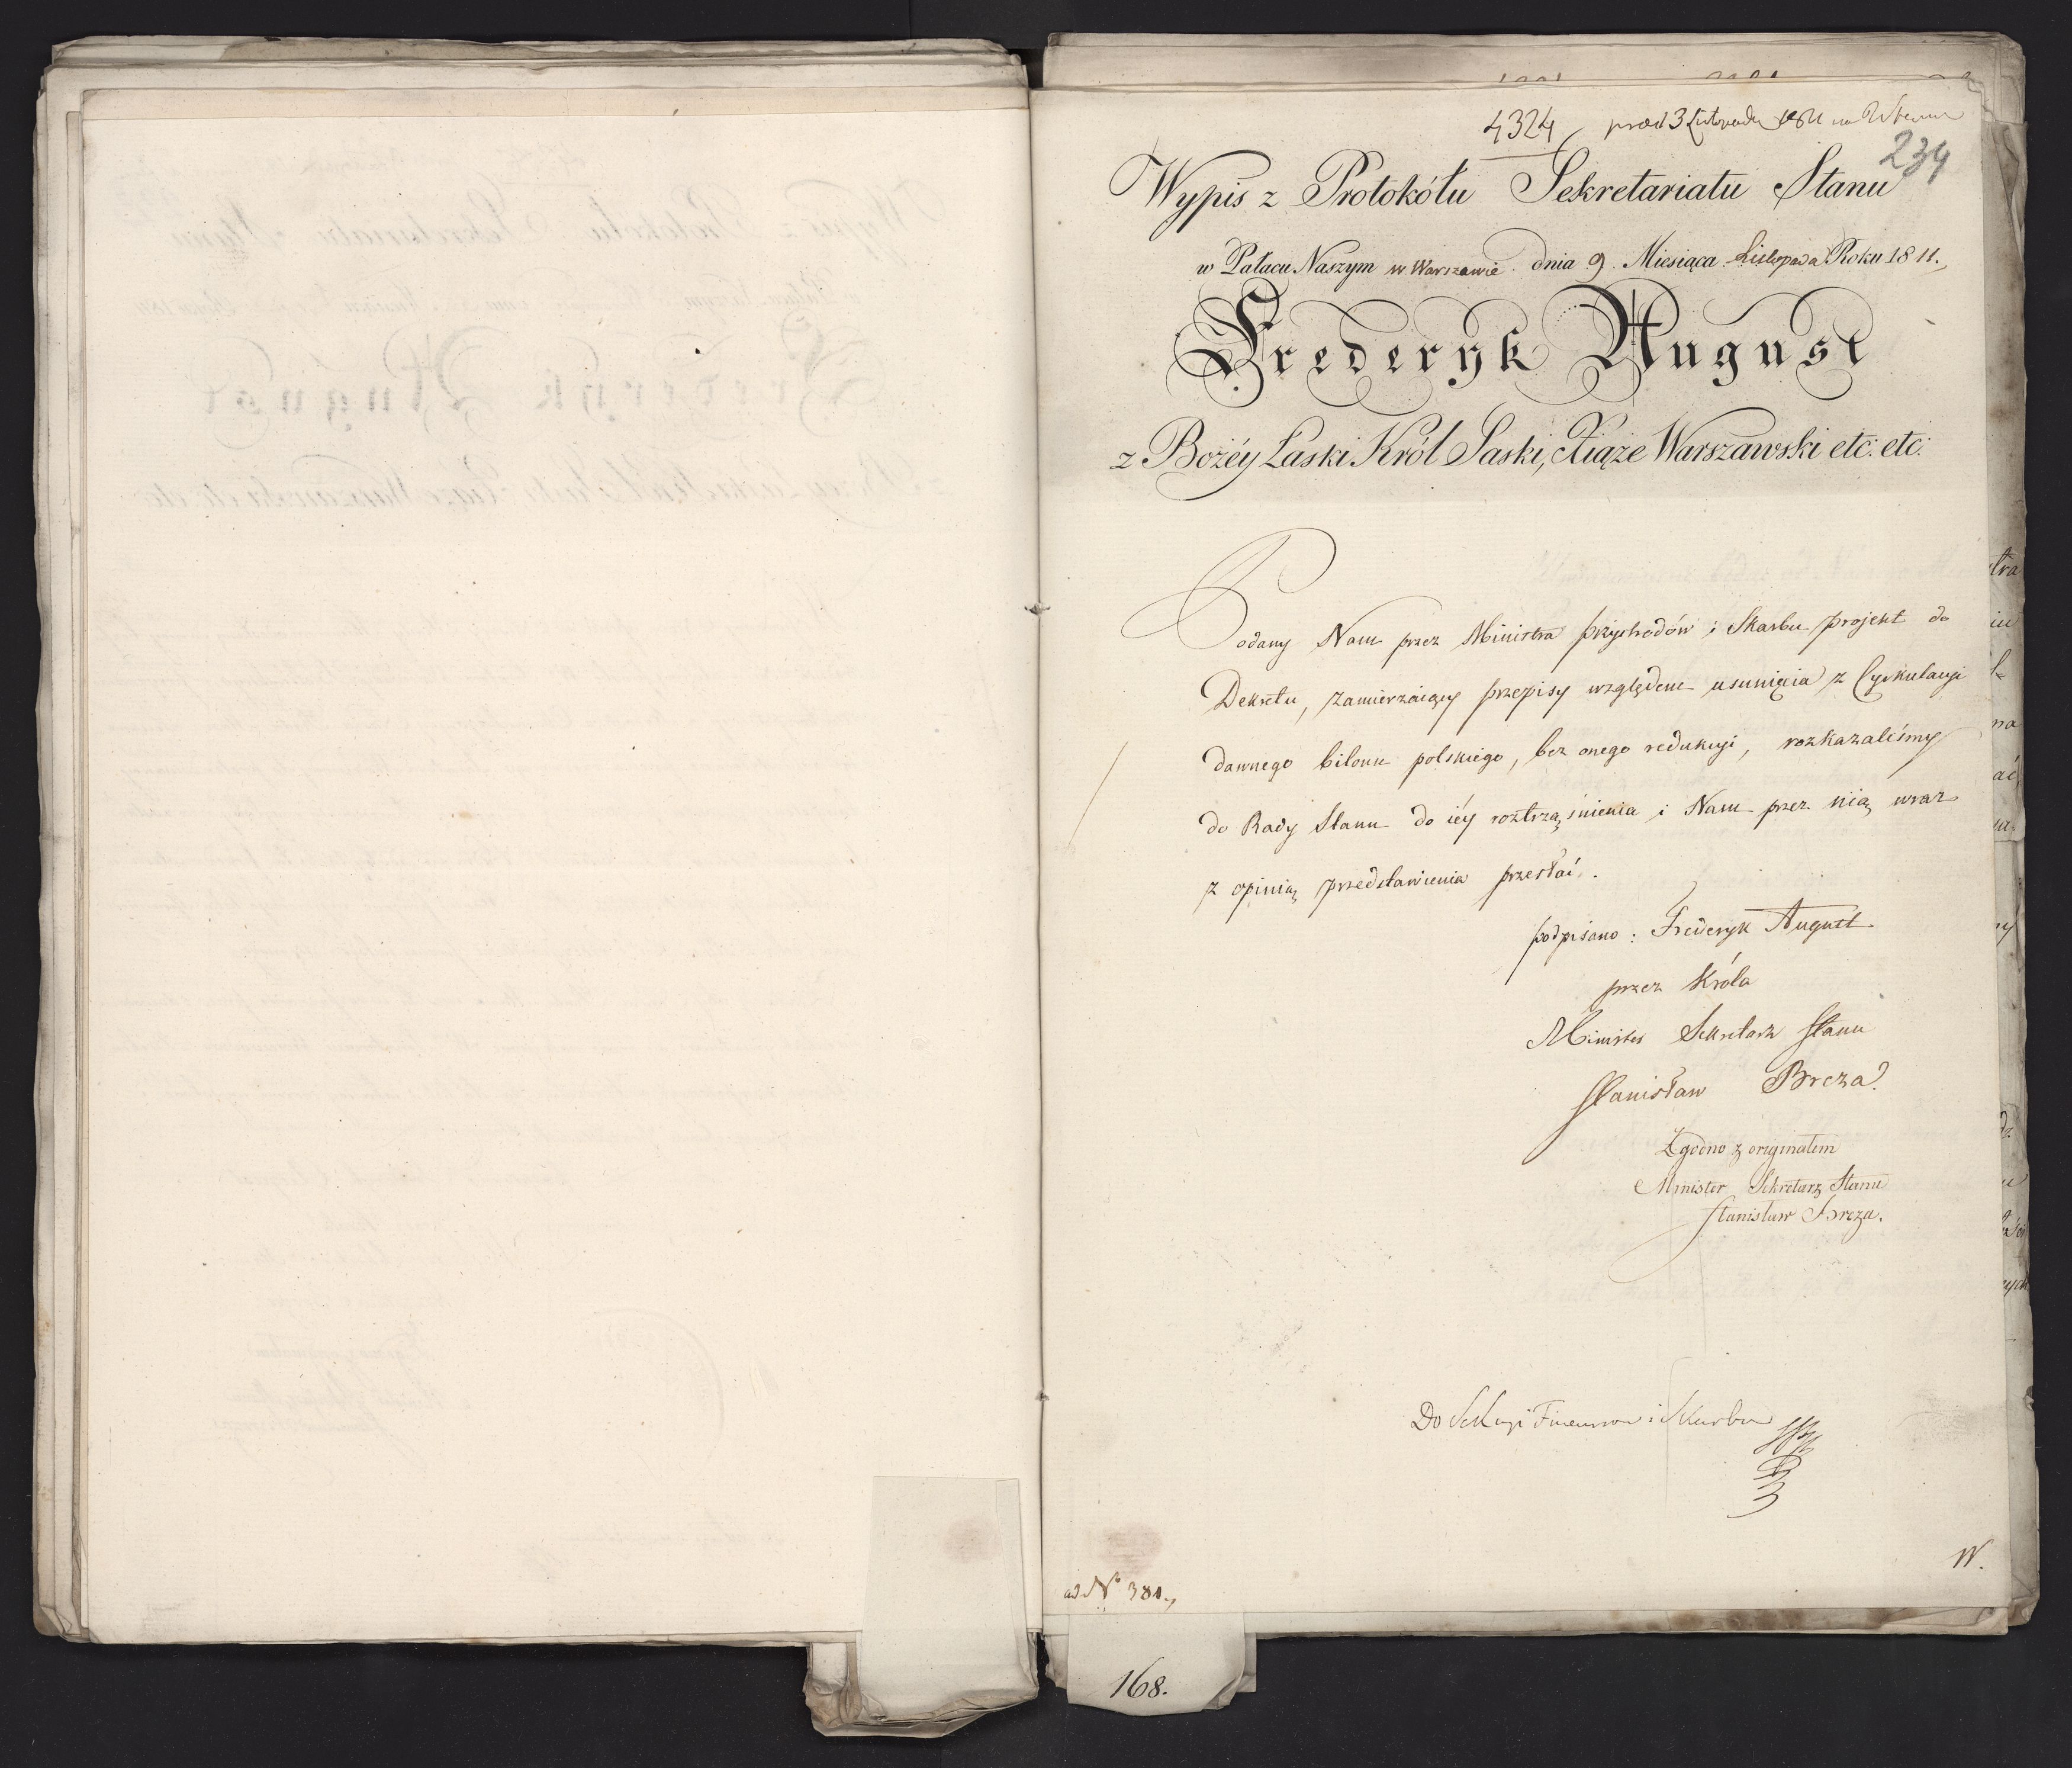 4324
3 Listopada
234
Wypis z Protokółu Sekretariatu Stanu
w Pałacu Naszym w Warszawie dnia 9. Miesiąca Listopada Roku 1811.
Frederyk August
z Bożéy Łaski Król Saski, Xiąże Warszawski etc: etc:
Podany Nam przez Ministra przychodów i Skarbu projekt do
Dekretu, zamierzaiący przepisy względem usunięcia z Cyrkulacyi
dawnego bilonu polskiego, bez onego redukcyi, rozkazaliśmy
do Rady Stanu do iéy roztrząśnienia i Nam przez nią wraz
z opinią przedstawienia przesłać.
podpisano: Frederyk August
przez Króla
Minister Sekretarz Stanu
Stanisław Breza.
Zgodno z oryginałem
Minister Sekretarz Stanu
Stanisław Breza.
Do Sekcyi Finansow i Skarbu
W.
ad No 381.
168.